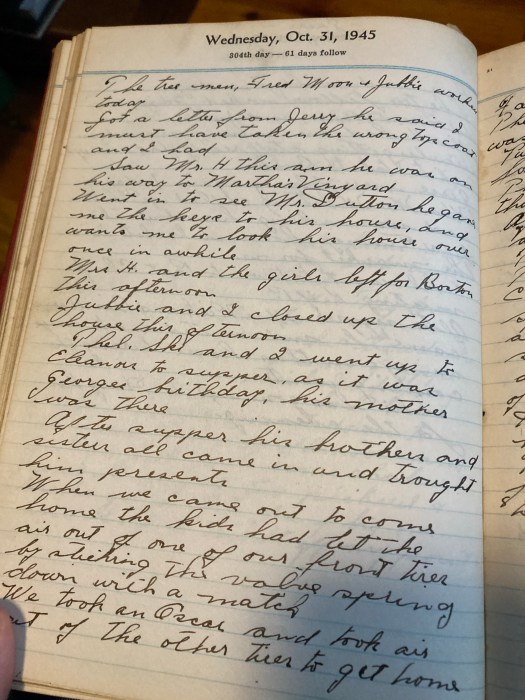 Wednesday, Oct. 31, 1945
304th day — 61 days follow
The tree men, Fred Moon & Jubbie workin
today
Got a letter from Jerry he said I
must have taken the wrong top coat
and I had
Saw Mr. H this am he was on
his way to Martha's Vinyard
Went in to see Mr. Dutton he gave
me the keys to his house, and
wants me to look his house over
once in awhile
Mrs H. and the girls left for Boston
this afternoon
Jubbie and I closed up the
house this afternoon
Thel. and I went up to
Eleanors to supper, as it was
Georges birthday, his mother
was there
After supper his brothers and
sister all came in and brought
him presents
When we came out to come
home the kids had let the
air out of one of our front tires
by sticking the valve spring
down with a match
We took an Oscar and took air
out of the other tires to get home